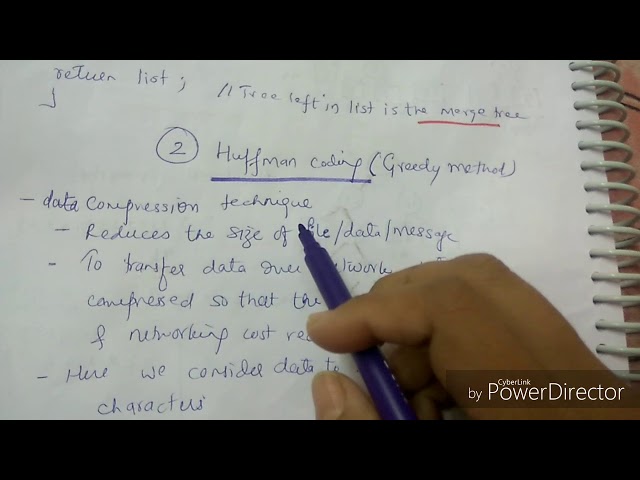 return list;
} // Tree left in list is the merge tree
② Huffman coding (Greedy method)
- data compression technique
- Reduces the size of file/data/message
- To transfer data over /work
compressed so that the
& networking cost re
- Here we consider data to
characters
CyberLink
by PowerDirector